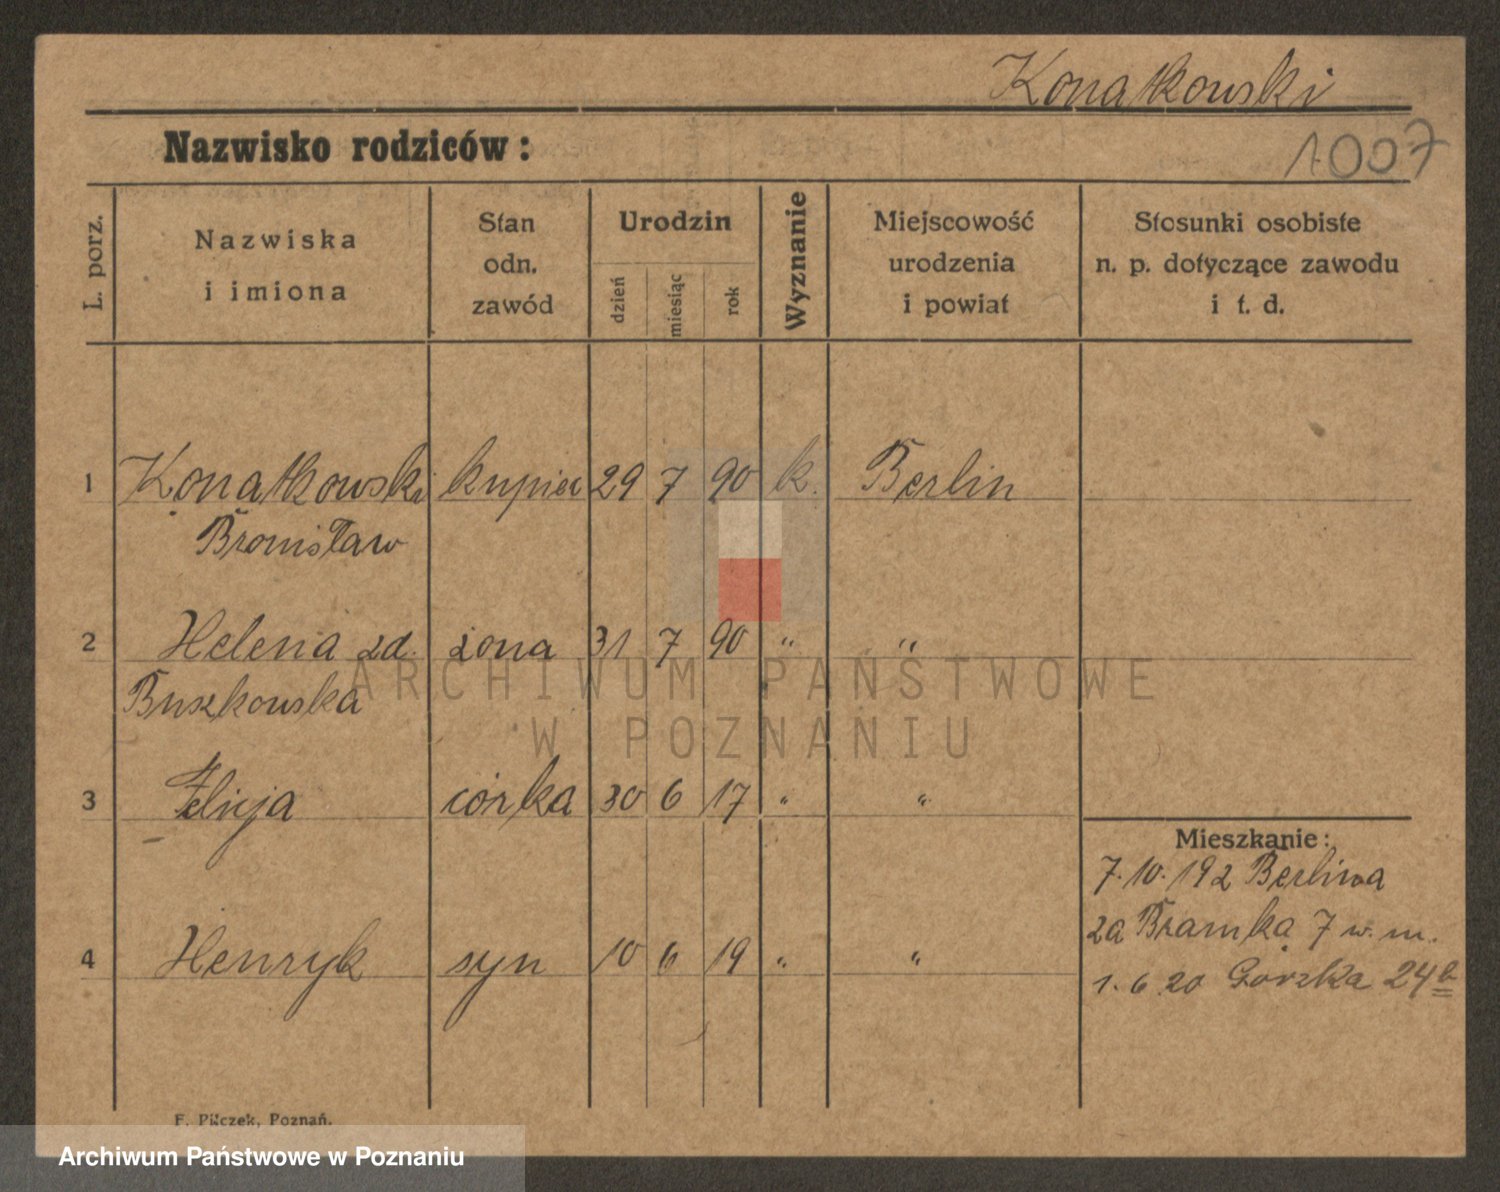 Konatkowski
1007
Nazwisko rodziców:
L. porz.
Nazwiska
i imiona
Stan
odn.
zawód
Urodzin
dzień
miesiąc
rok
Wyznanie
Miejscowość
urodzenia
i powiat
Stosunki osobiste
n. p. dotyczące zawodu
i t. d.
1 Konatkowski kupiec 29 7 90 k. Berlin
Bronisław
2 Helena zd. żona 31 7 90 " "
Buszkowska
3 Felicja córka 30 6 17 " "
Mieszkanie:
7. 10. 192 Berlina
za Bramką 7 w. m.
4 Henryk syn 10 6 19 " "
1. 6 20 Górzka 24b
F. Pilczek, Poznań.
ARCHIWUM PAŃSTWOWE
W POZNANIU
Archiwum Państwowe w Poznaniu